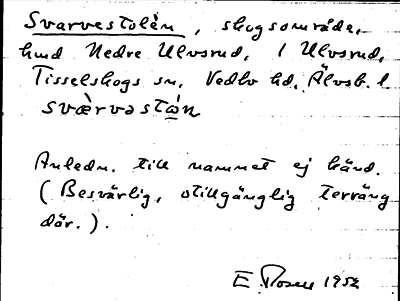 Svarvestolån, skogsområde,
hmd Nedre Ulvsrud, 1 Ulvsrud,
Tisselskogs sn. Vedbo hd. Älvsb. l.
svæ̀rvəstån
Anledn. till namnet ej känd.
(Besvärlig, otillgänglig terräng
där.).
E Rosell 1952